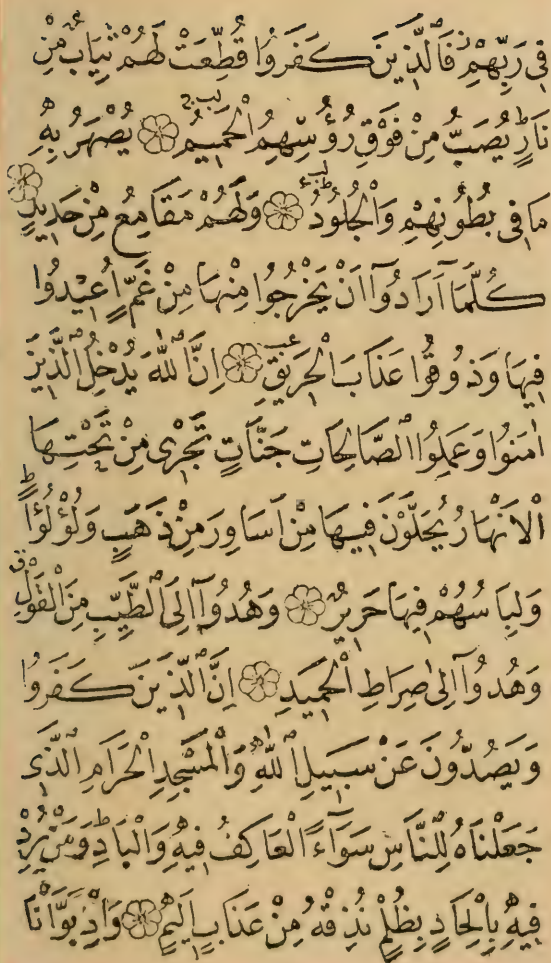 فِي رَبِّهِمْ فَالَّذِينَ كَفَرُوا قُطِّعَتْ لَهُمْ ثِيَابٌ مِنْ
نَارٍ يُصَبُّ مِنْ فَوْقِ رُؤُسِهِمُ الْحَمِيمُ ۝ يُصْهَرُ بِهِ
مَا فِي بُطُونِهِمْ وَالْجُلُودُ ۝ وَلَهُمْ مَقَامِعُ مِنْ حَدِيدٍ ۝
كُلَّمَا آرَادُوآ اَنْ يَخْرُجُوا مِنْهَا مِنْ غَمٍّ اُعِيدُوا
فِيهَا وَذُوقُوا عَذَابَ الْحَرِيقِ ۝ اِنَّ اللّٰهَ يُدْخِلُ الَّذِينَ
اٰمَنُوا وَعَمِلُوا الصَّالِحَاتِ جَنَّاتٍ تَجْرِى مِنْ تَحْتِهَا
الْاَنْهَارُ يُحَلَّوْنَ فِيهَا مِنْ اَسَاوِرَ مِنْ ذَهَبٍ وَلُؤْلُؤًا
وَلِبَاسُهُمْ فِيهَا حَرِيرٌ ۝ وَهُدُوآ اِلَى الطَّيِّبِ مِنَ الْقَوْلِ
وَهُدُوآ اِلٰى صِرَاطِ الْحَمِيدِ ۝ اِنَّ الَّذِينَ كَفَرُوا
وَيَصُدُّونَ عَنْ سَبِيلِ اللّٰهِ وَالْمَسْجِدِ الْحَرَامِ الَّذِى
جَعَلْنَاهُ لِلنَّاسِ سَوَآءً الْعَاكِفُ فِيهِ وَالْبَادِ وَمَنْ يُرِدْ
فِيهِ بِاِلْحَادٍ بِظُلْمٍ نُذِقْهُ مِنْ عَذَابٍ اَلِيمٍ ۝ وَاِذْ بَوَّاْنَا